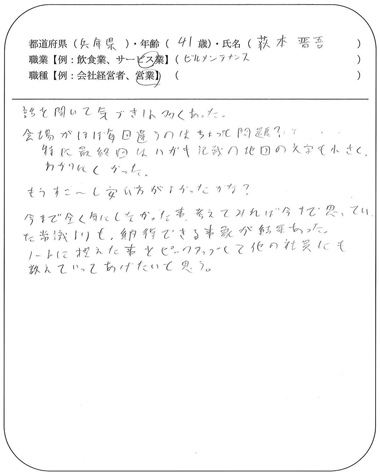 都道府県（兵庫県）・年齢（ 41 歳）・氏名（ 萩本 晋吾 ）
職業【例：飲食業、サービス業】（ ビルメンテナンス ）
職種【例：会社経営者、営業】（ ）
話を聞いて気づきは多くあった。
会場がほぼ毎回違うのはちょって問題？
特に最終回はハガキ記載の地図の文字も小さく、
わかりにくかった。
もうすこーし安い方がよかったかな？
今まで全く気にしなかった事、考えてみれば今まで思ってい
た常識よりも、納得できる事款が結果あった。
ノートに控えた事をピックアップして他の社員にも
教えていってあげたいと思う。